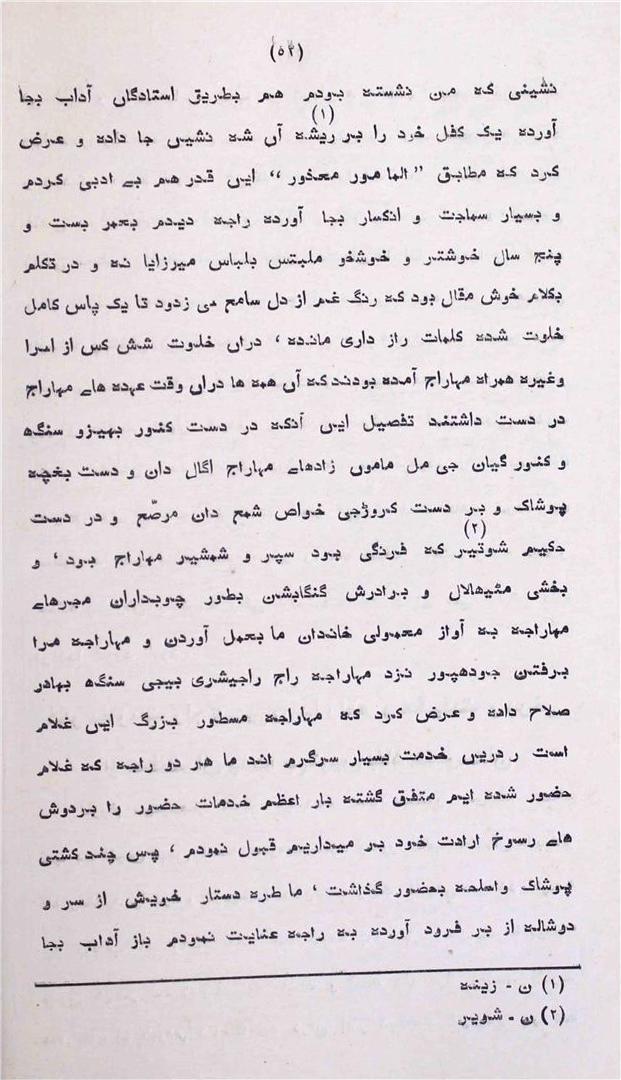 (۵۴)
نشینی که من نشسته بودم هم بطریق استادگان آداب بجا
آورده یک کفل خود را بر ریشه (۱) آن شه نشین جا داده و عرض
کرد که مطابق ”المامور معذور“ این قدر هم بے ادبی کردم
و بسیار سماجت و انکسار بجا آورده راجه دیدم بعمر بست و
پنج سال خوشتر و خوشخو ملبتس بلباس میرزایا نه و در تکلم
بکلام خوش مقال بود که رنگ غم از دل سامع می زدود تا یک پاس کامل
خلوت شده کلمات راز داری مانده ، دران خلوت شش کس از امرا
وغیره همراه مهاراج آمده بودند که آن همه ها دران وقت عهده هاے مهاراج
در دست داشتند تفصیل این آنکه در دست کنور بهیزو سنگه
و کنور گیان جی مل مامون زادهاے مهاراج اگال دان و دست بغچه
پوشاک و بر دست کروڑجی خواص شمع دان مرصّع و در دست
حکیم شوتیر (۲) که فرنگی بود سپر و شمشیر مهاراج بود ، و
بخشی مٹیهالال و برادرش گنگابشن بطور چوبداران مجرهاے
مهاراجه به آواز معمولی خاندان ما بعمل آوردن و مهاراجه مرا
برفتن جودهپور نزد مهاراجه راج راجیشری بیجی سنگه بهادر
صلاح داده و عرض کرد که مهاراجه مسطور بزرگ این غلام
است ر درین خدمت بسیار سرگرم اند ما هر دو راجه که غلام
حضور شده ایم متفق گشته بار اعظم خدمات حضور را بردوش
هاے رسوخ ارادت خود بر میداریم قبول نمودم ، پس چند کشتی
پوشاک واصلحه بحضور گذاشت ، ما طره دستار خویش از سر و
دوشاله از بر فرود آورده به راجه عنایت نمودم باز آداب بجا
(۱) ن - زینه
(۲) ن - شویر